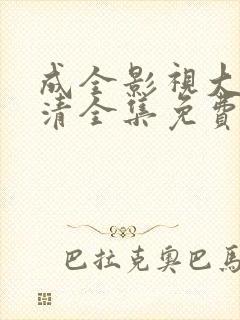 成全影視大
清全集免費
巴拉克奧巴馬